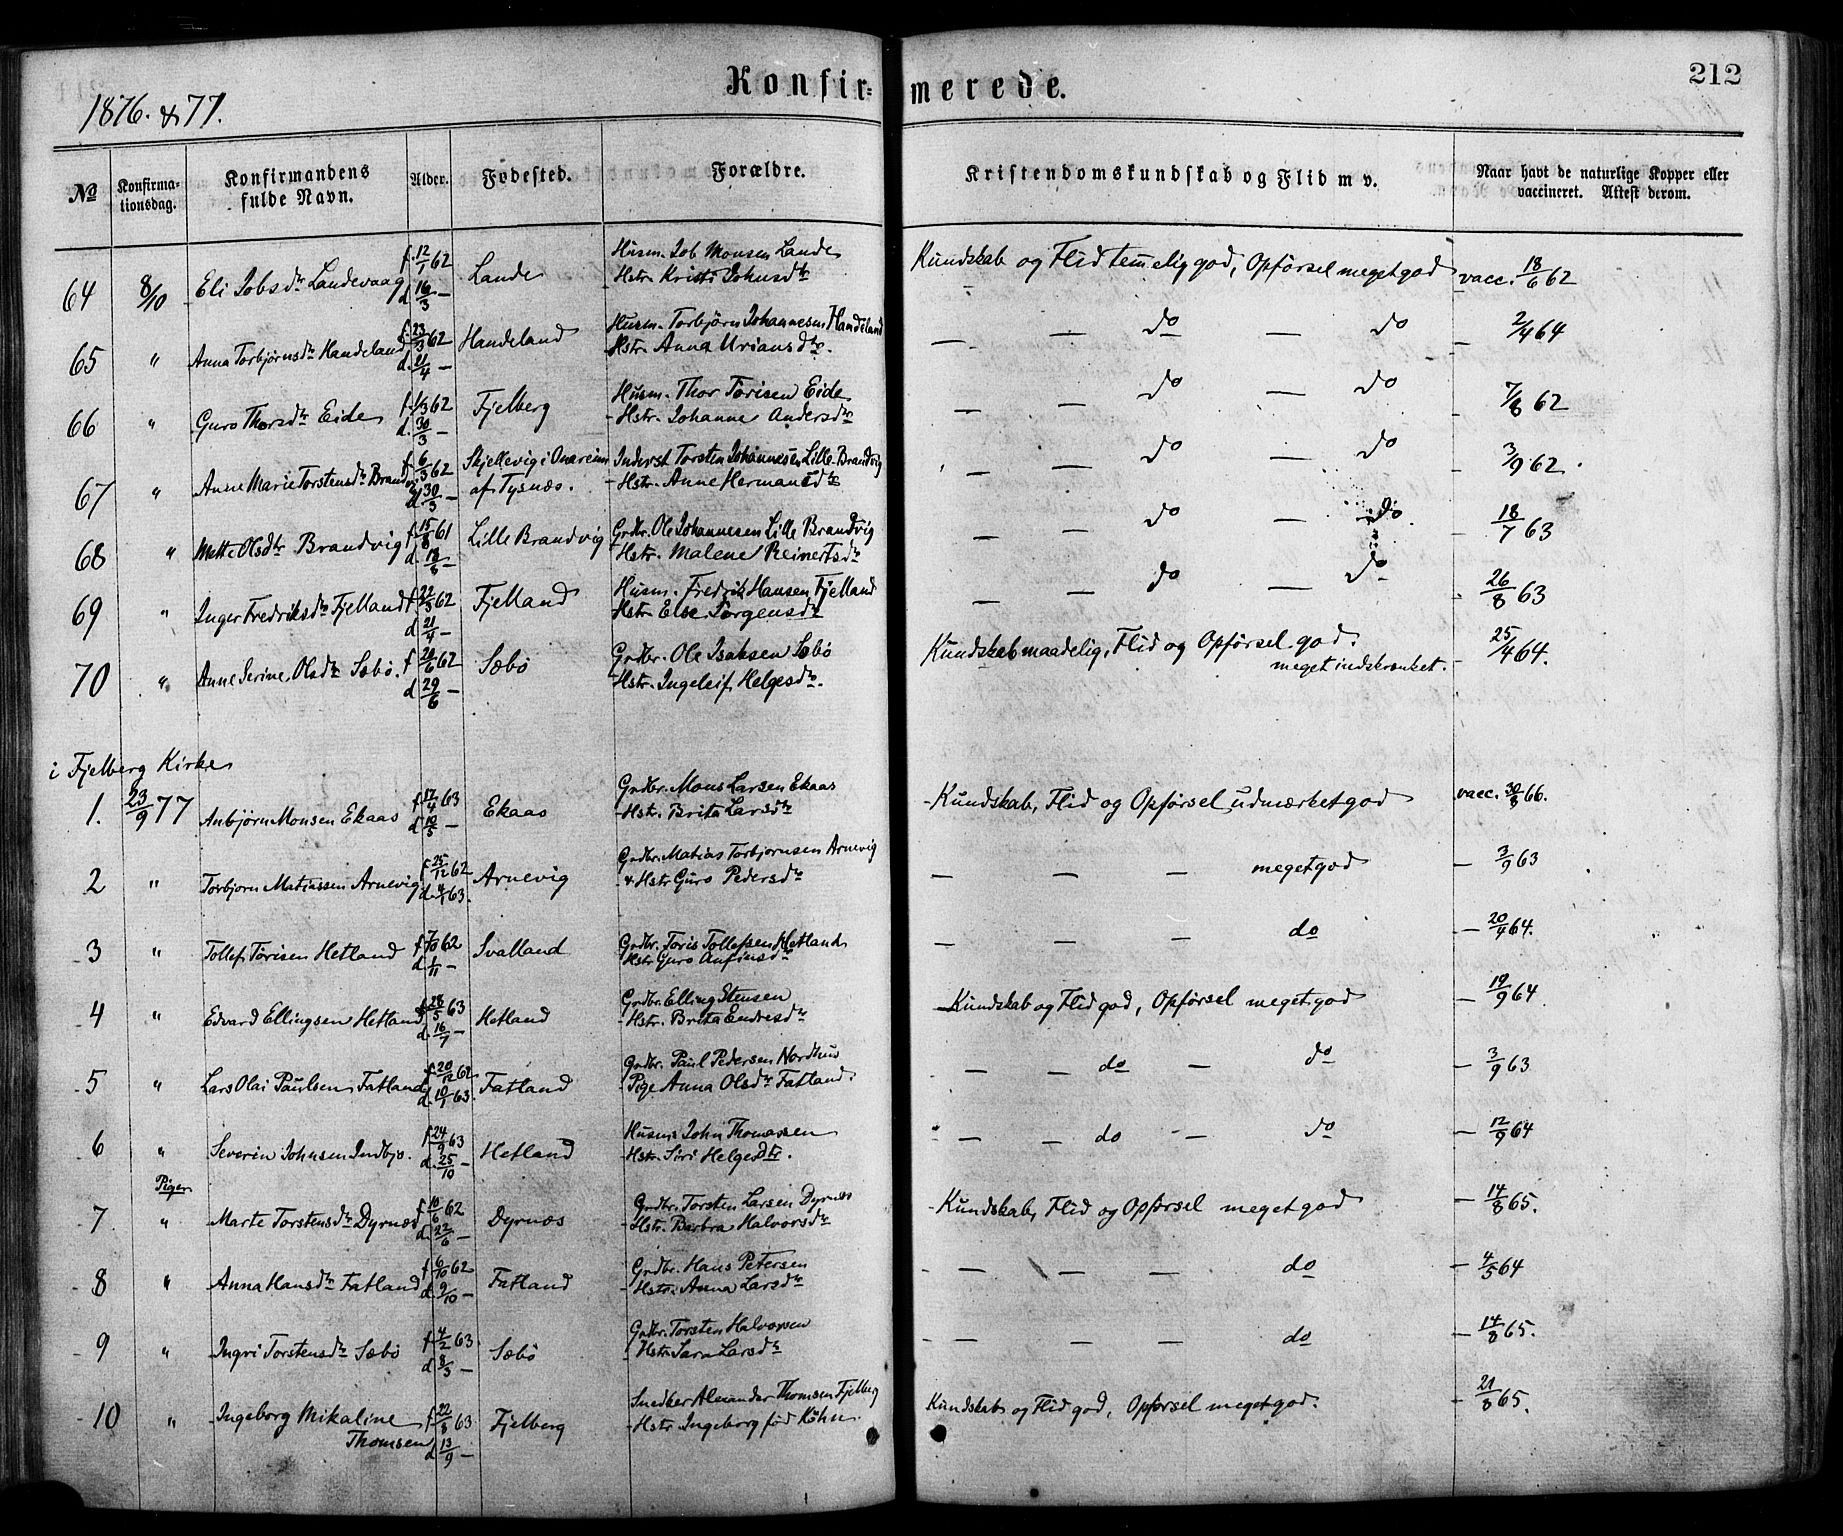 Konfirmerede. 212
1876. & 77.
№ Konfirmationsdag. Konfirmandens fulde Navn. Alder. Fødested. Forældre. Kristendomskundskab og Flid m v. Naar havt de naturlige Kopper eller vaccineret. Attest derom.
64 8/10 Eli Jobsdtr Landevaag f. 12/1 62 d. 16/3 — Lande Husm. Job Monsen Lande Hstr. Kristi Johnsdtr Kundskab og Flid temmelig god, Opførsel meget god vacc. 18/6 62
65 " Anna Torbjørnsdtr Handeland f. 23/3 62 d. 21/4 — Handeland Husm. Torbjørn Johannesen Handeland Hstr. Anna Uriansdtr. — — do — do — 2/4 64
66 " Guro Thorsdtr Eide f. 1/3 62 d. 30/3 — Fjelberg Husm. Thor Torisen Eide Hstr. Johanne Andersdtr — — do — do — 7/8 62
67 " Anne Marie Torstensdtr Brandvig f. 6/3 62 d. 30/3 — Skjellevig i Onareim af Tysnæs. Inderst Torsten Johannesen Lille Brandvig Hstr. Anne Hermansdtr — — do — do — 3/9 62
68 " Mette Olsdtr Brandvig f. 15/8 61 d. 18/8 — Lille Brandvig Grdbr. Ole Johannesen Lille Brandvig Hstr. Malene Reinertsdtr — — do — do. — 18/7 63
69 " Inger Fredriksdtr Fjelland f. 22/3 62 d. 21/4 — Fjelland Husm. Fredrik Hansen Fjelland Hstr. Else Jørgensdtr — — do — do — 26/8 63
70 " Anne Serine Olsdtr Sæbø. f. 20/6 62 d. 29/6 — Sæbø Grdbr. Ole Isaksen Sæbø Hstr. Ingeleif Helgesdtr. Kundskab maadelig, Flid og Opførsel god. meget indskrænket. — 25/4 64.
i Fjelberg Kirke
1. 23/9 77 Anbjørn Monsen Ekaas f. 17/4 63 d. 10/5 — Ekaas Grdbr. Mons Larsen Ekaas Hstr. Brita Larsdtr Kundskab, Flid og Opførsel udmærket god vacc. 30/8 66.
2 " Torbjørn Matiassen Arnevig f. 25/12 62 d. 4/1 63. Arnevig Grdbr. Matias Torbjørnsen Arnevig & Hstr Guro Pedersdtr — — — meget god — 3/9 63
3 " Tollef Torisen Hetland f. 7/10 62 d. 1/11 — Svalland Grdbr. Toris Tollefsen Hetland Hstr Guro Anfinsdtr — — — do — 20/4 64.
4 " Edvard Ellingsen Hetland f. 28/5 63 d. 16/7 — Hetland Grdbr. Elling Stensen Hstr. Brita Endresdtr Kundskab og Flid god, Opførsel meget god — 19/9 64.
5 " Lars Olai Paulsen Fatland f. 20/12 62 d. 10/1 63. Fatland Grdbr. Paul Pedersen Nordhus Pige Anna Olsdtr Fatland. — — do — do — 3/9 63
6 " Severin Johnsen Indbjo. f. 24/9 63 d. 25/10 — Hetland Husm. John Thomassen Hstr. Siri Helgesdtr. — — do — do — 12/9 64
Piger
7 " Marte Torstensdtr Dyrnæs f. 10/6 62 d. 22/6 — Dyrnæs Grdbr. Torsten Larsen Dyrnæs Hstr. Barbra Halvorsdtr Kundskab, Flid og Opførsel meget god — 14/8 65.
8 " Anna Hansdtr Fatland f. 6/10 62 d. 9/10 — Fatland Grdbr. Hans Petersen Hstr. Anna Larsdtr — — — do — 4/5 64
9 " Ingri Torstensdtr Sæbø f. 4/2 63. d. 8/3 — Sæbø Grdbr. Torsten Halvorsen Hstr. Sara Larsdtr — — — do — 14/8 65.
10 " Ingeborg Mikaline Thomsen f. 22/8 63 d. 13/9 — Fjelberg Snedker Alexander Thomsen Fjelberg Hstr. Ingeborg fød Köhn. Kundskab og Flid god, Opførsel meget god. — 21/8 65.